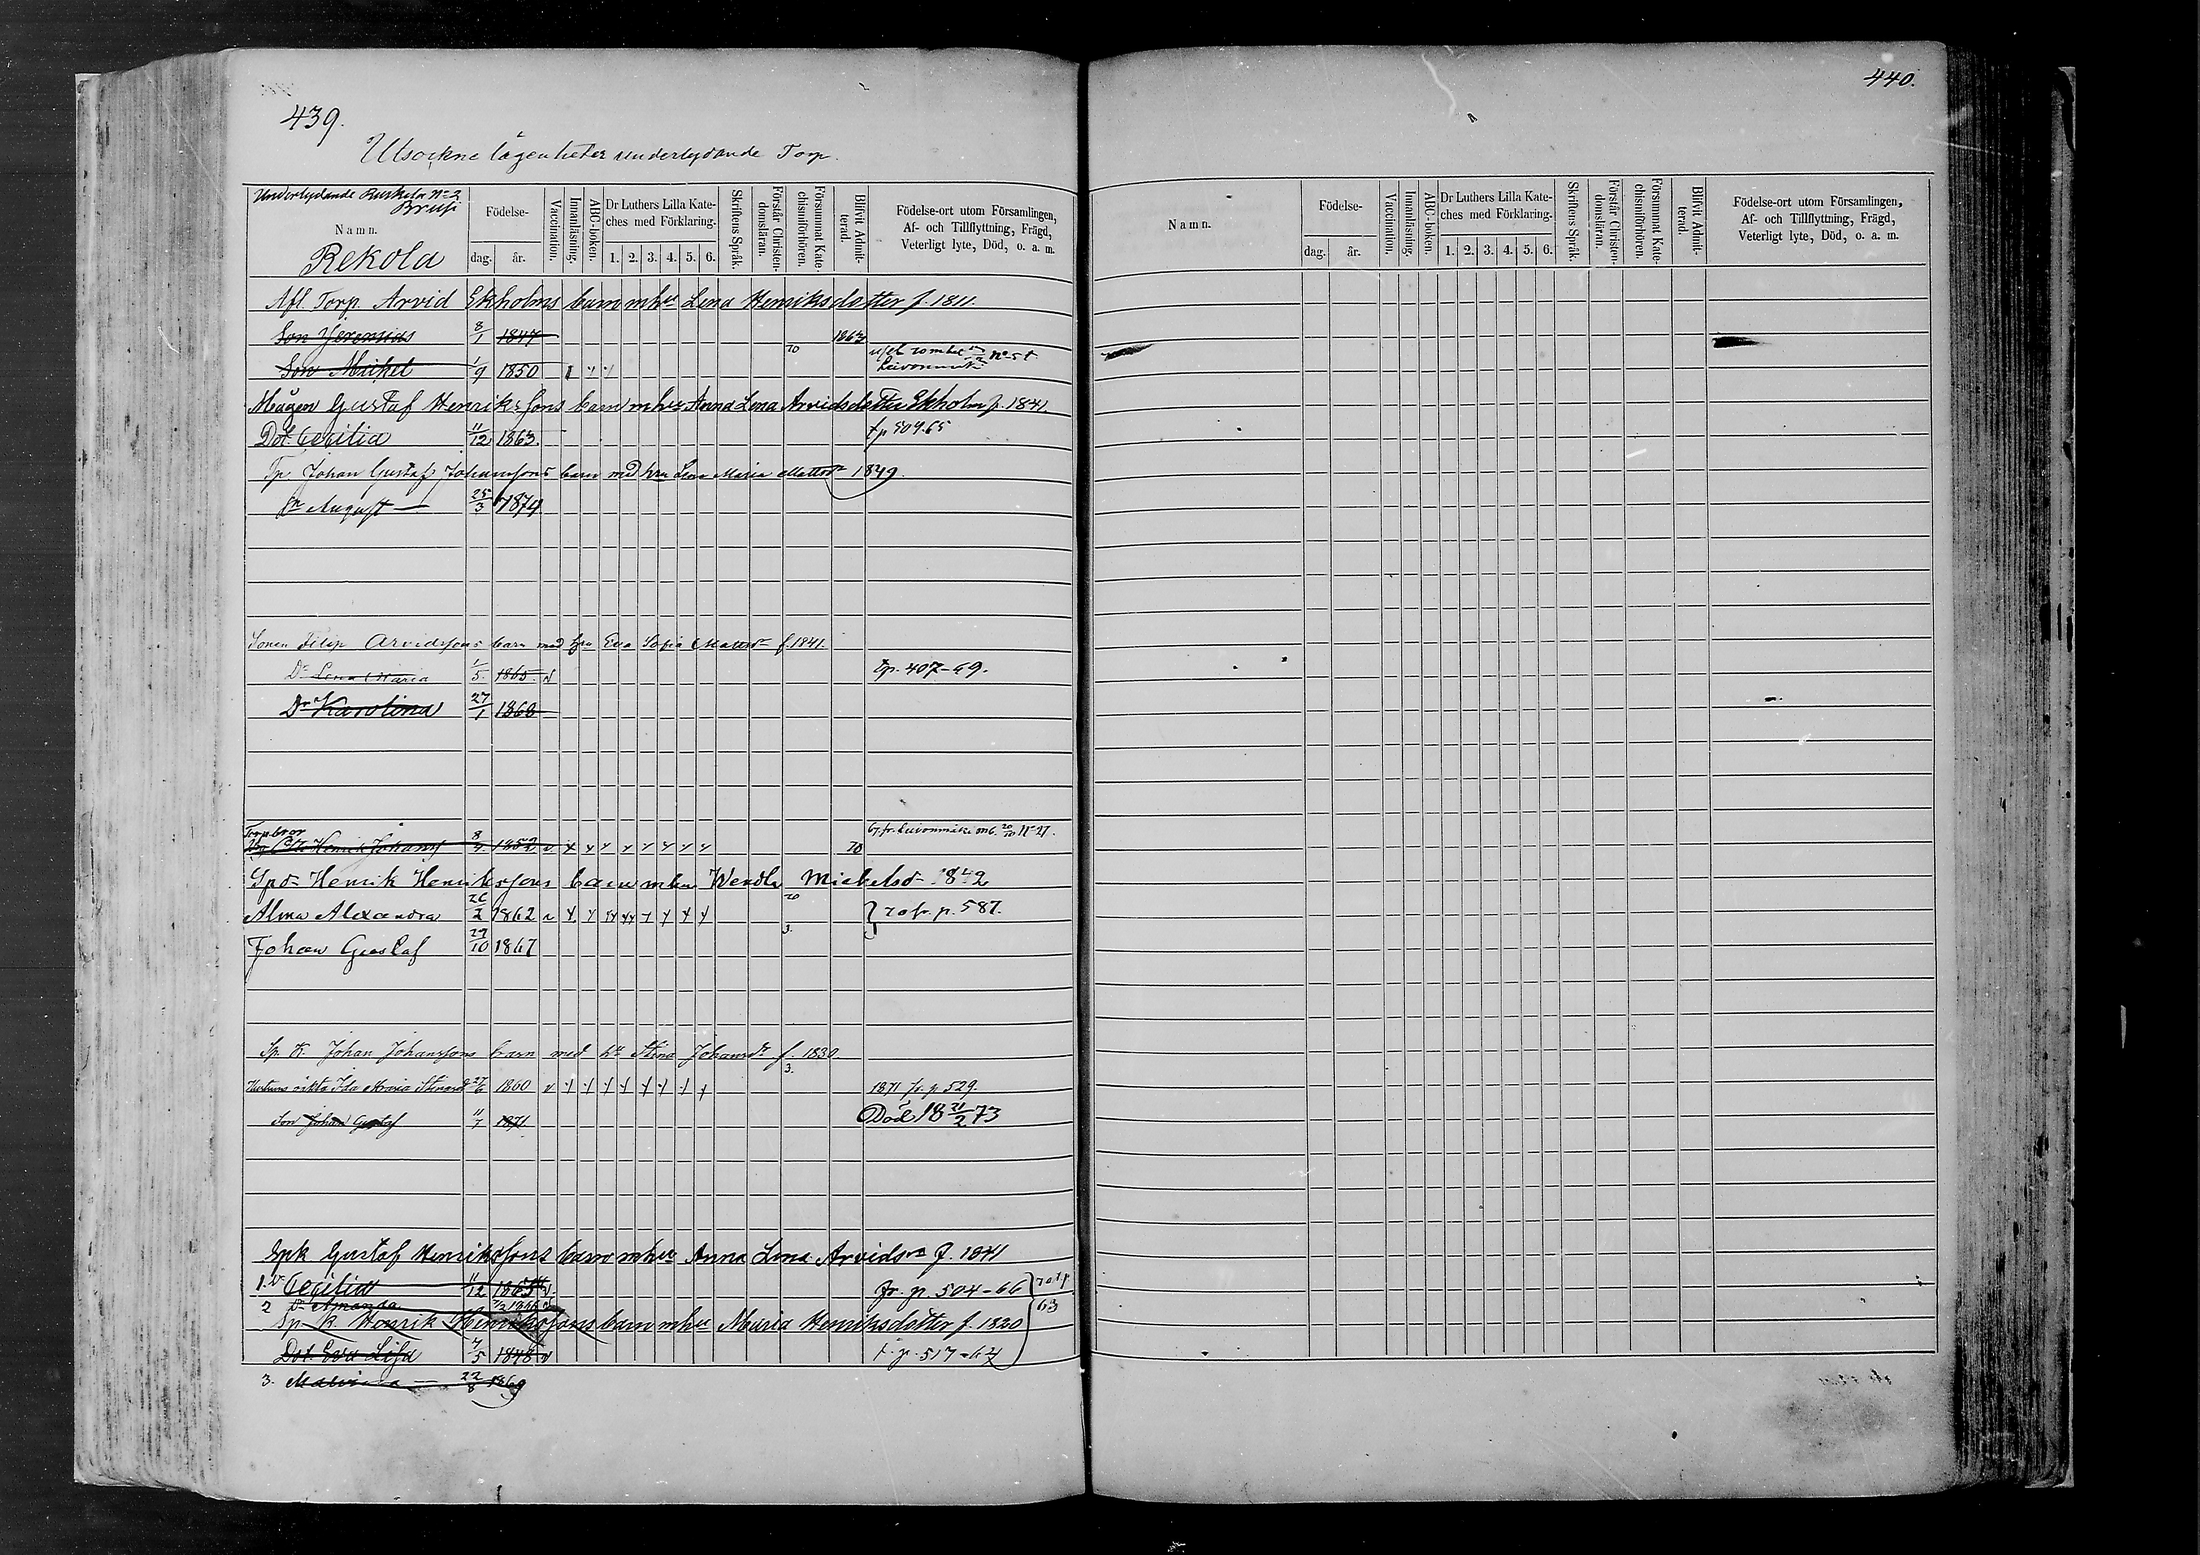 439.
Utsockne lägenheter underlydande Torp.
Underlydande Ruskela No 2
Brusi
Namn.
Rekola
Födelse-
dag. år.
Vaccination.
Innanläsning.
ABC-boken.
Dr Luthers Lilla Kate-
ches med Förklaring.
1. 2. 3. 4. 5. 6.
Skriftens Språk.
Förstår Christen-
domsläran.
Försummat Kate-
chismiförhören.
Blifvit Admit-
terad.
Födelse-ort utom Församlingen,
Af- och Tillflyttning, Frägd,
Veterligt lyte, Död, o. a. m.
Afl. Torp. Arvid Ekholms barn m hu Lena Henriksdotter f. 1811.
Son Jeremias 8/1 1847 1867
Son Mikel 1/9 1850 70
Mågen Gustaf Henrikssons barn m hu Anna Lena Arvidsdotter Ekholm f. 1841.
Dot. Cecilia 11/12 1863. f p 504.65
Tp. Johan Gustaf Johanssons barn med hru Lena Maria Mattsdr 1849.
Sn August — 25/3 1874
Sonen Filip Arvidssons barn med hru Eva Sofia Mattsdr f. 1841.
Dr Lena Maria 1/5. 1865. v tp. 407-69.
Dr Karolina 27/1 1868
Torp. bror
Henrik Johanss 8 1852 70 67 fr. Leivonmäki
Spdr Henrik Henrikssons barn m hu Wendla Mickelsdr 1842
Alma Alexandra 26/2 1862 70 } 70 fr. p. 587.
Johan Gustaf 29/10 1867 3.
Sp. K. Johan Johanssons barn med hu Stina Johansdr f. 1830.
Hustruns oäkta Ida Maria Stinasdr 27/6 1860 3. 1871 fr. p. 529.
Son Johan Gustaf 11/7 1871. Död 18 21/2 73
Spk Gustaf Henrikssons barn m hu Anna Lena Arvidsdr f. 1841
1. Dr Cecilia 11/12 1863 v fr. p. 504-66
2 Dr Amanda 1866 v 63
Sp K Henrik Henrikssons barn m hu Maria Henriksdotter f. 1820
Dot. Eva Lisa 4/5 1848 v f. p. 517-67
3. Malvina — 22/8 1869
440.
Namn.
Födelse-
dag. år.
Vaccination.
Innanläsning.
ABC-boken.
Dr Luthers Lilla Kate-
ches med Förklaring.
1. 2. 3. 4. 5. 6.
Skriftens Språk.
Förstår Christen-
domsläran.
Försummat Kate-
chismiförhören.
Blifvit Admit-
terad.
Födelse-ort utom Församlingen,
Af- och Tillflyttning, Frägd,
Veterligt lyte, Död, o. a. m.